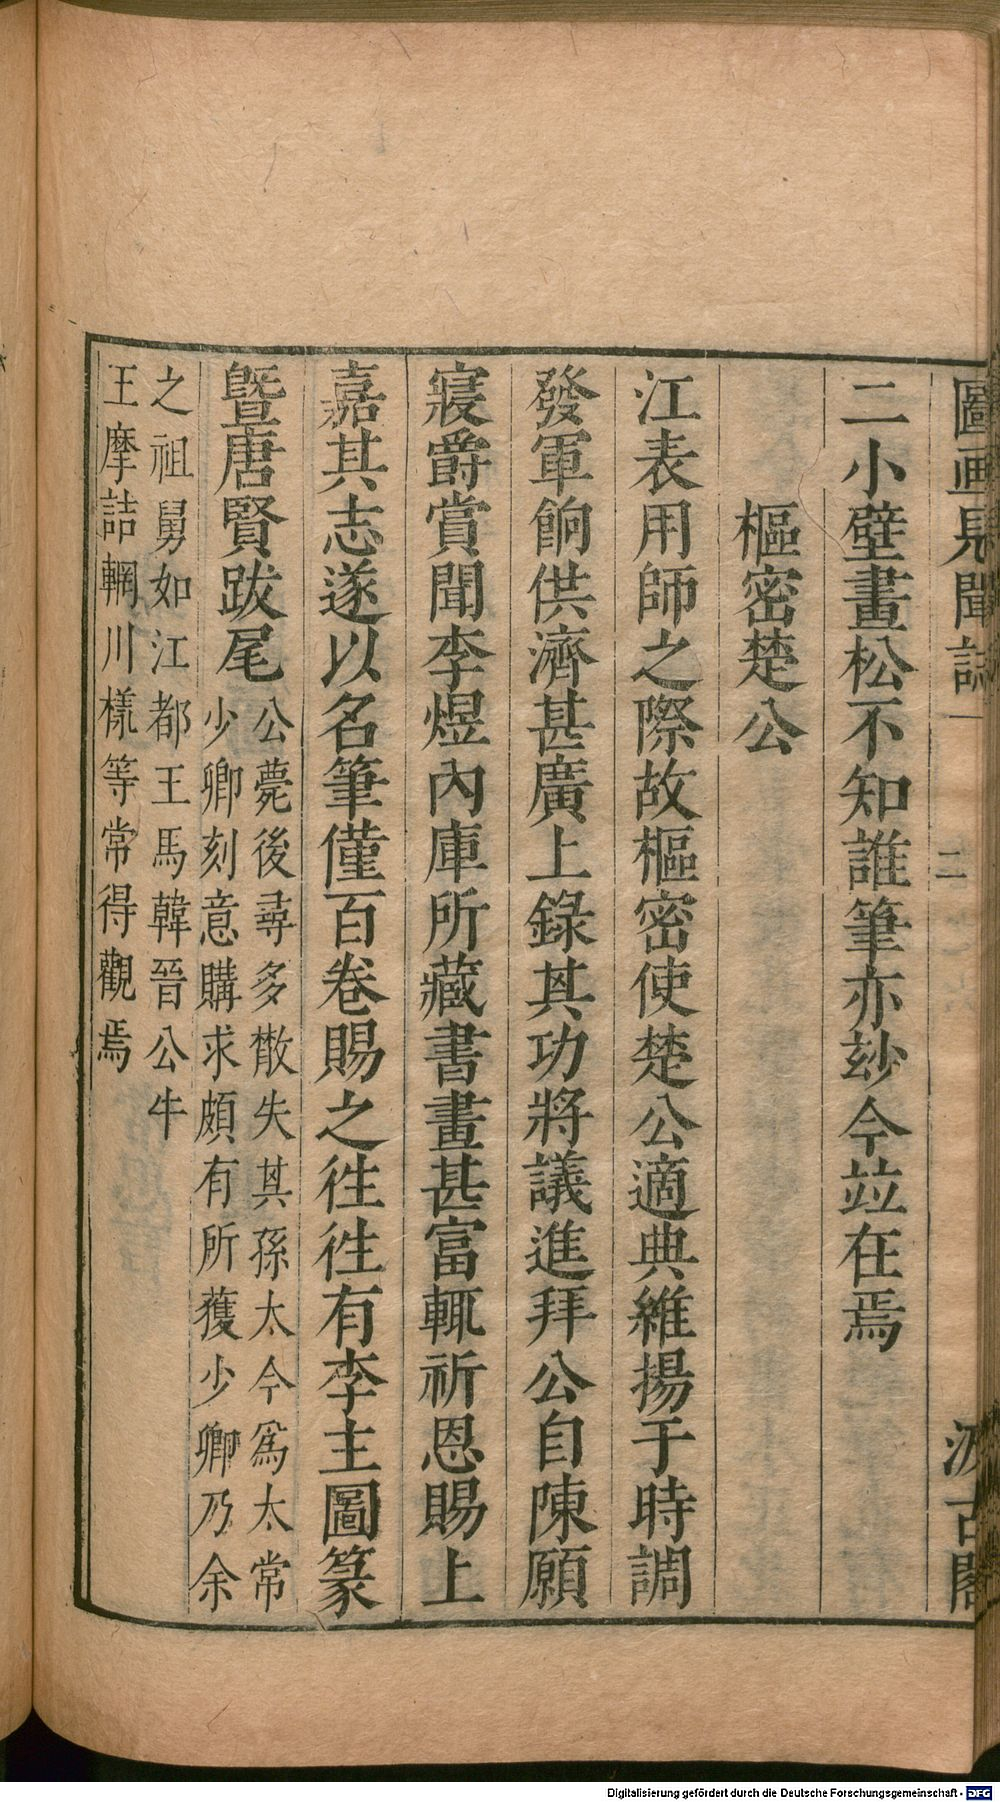 圖画見聞誌一
二
汲古閣
二小壁畫松不知誰筆亦玅今竝在焉
樞密楚公
江表用師之際故樞密使楚公適典維揚于時調
發軍餉供濟甚廣上錄其功將議進拜公自陳願
寢爵賞聞李煜內庫所藏書畫甚富輒祈恩賜上
嘉其志遂以名筆僅百卷賜之徃徃有李主圖篆
暨唐賢跋尾公薨後尋多散失其孫太今爲太常
少卿刻意購求頗有所獲少卿乃余
之祖舅如江都王馬韓晉公牛
王摩詰輞川樣等常得觀焉
Digitalisierung gefördert durch die Deutsche Forschungsgemeinschaft - DFG